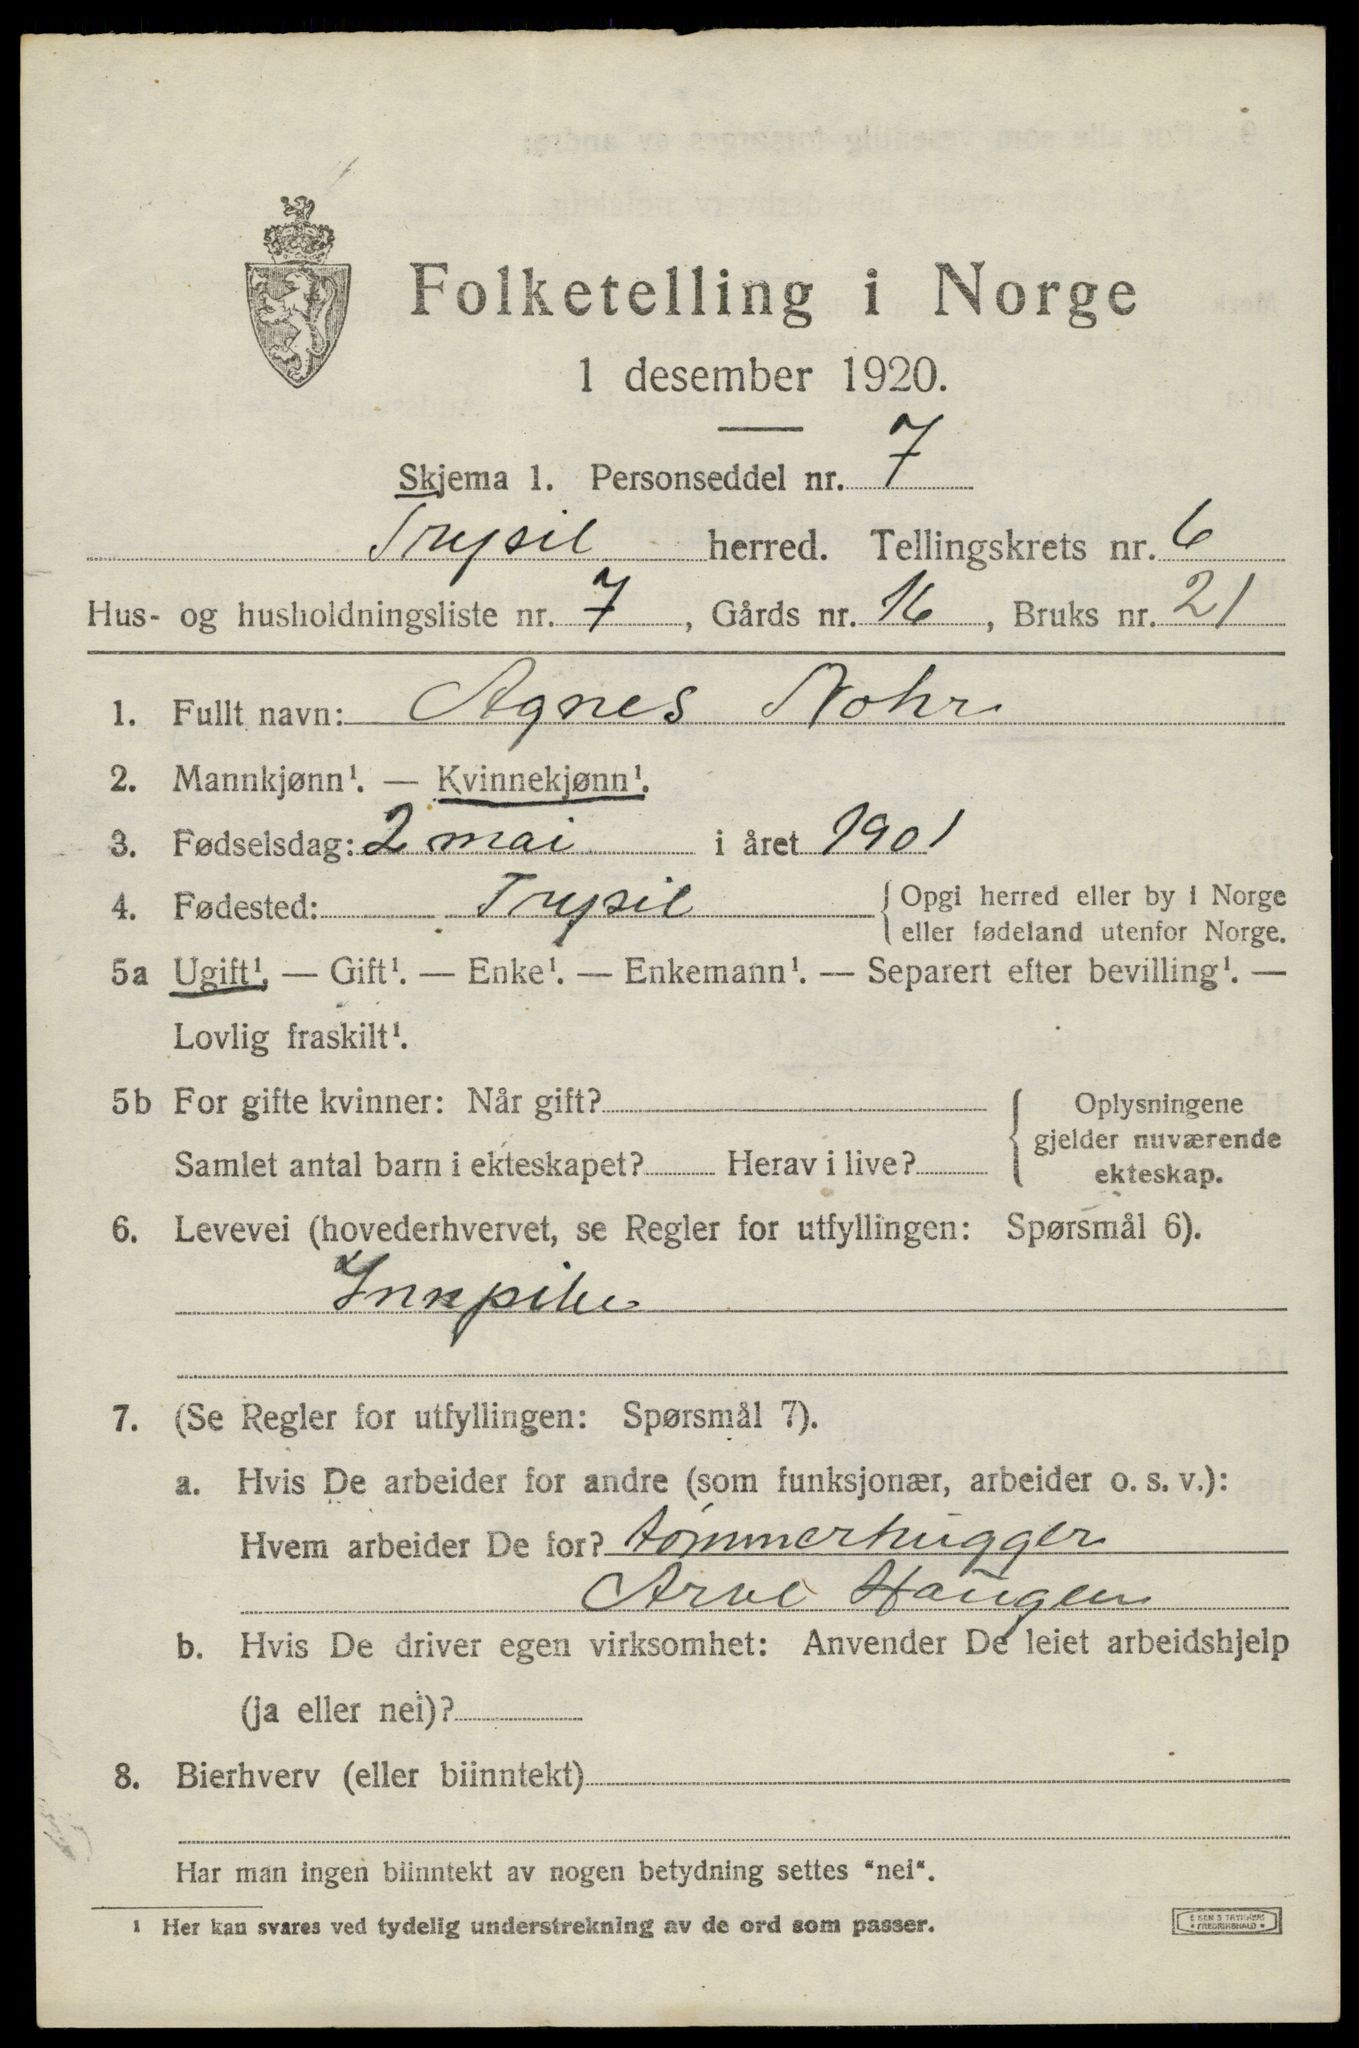 Folketelling i Norge
1 desember 1920.
Skjema 1. Personseddel nr. 7
Trysil herred. Tellingskrets nr. 6
Hus- og husholdningsliste nr. 7, Gårds nr. 16, Bruks nr. 21
1. Fullt navn: Agnes Nohr
2. Mannkjønn¹. — Kvinnekjønn¹.
3. Fødselsdag: 2 mai i året 1901
4. Fødested: Trysil { Opgi herred eller by i Norge
eller fødeland utenfor Norge.
5a Ugift¹. — Gift¹. — Enke¹. — Enkemann¹. — Separert efter bevilling¹. —
Lovlig fraskilt¹.
5b For gifte kvinner: Når gift? { Oplysningene
gjelder nuværende
Samlet antal barn i ekteskapet? Herav i live?
ekteskap.
6. Levevei (hovederhvervet, se Regler for utfyllingen: Spørsmål 6).
Innpike
7. (Se Regler for utfyllingen: Spørsmål 7).
a. Hvis De arbeider for andre (som funksjonær, arbeider o. s. v.):
Hvem arbeider De for? tømmerhugger
Arve Haugen
b. Hvis De driver egen virksomhet: Anvender De leiet arbeidshjelp
(ja eller nei)?
8. Bierhverv (eller biinntekt)
Har man ingen biinntekt av nogen betydning settes "nei".
¹ Her kan svares ved tydelig understrekning av de ord som passer.